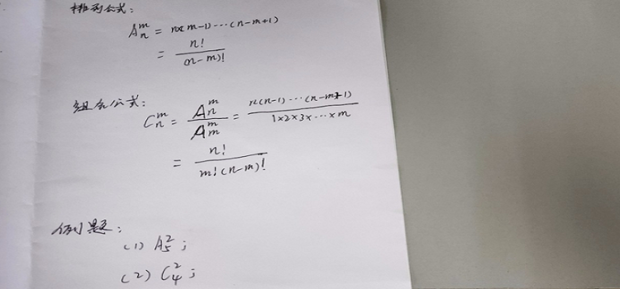 排列公式：
A_n^m = n×(m-1)…(n-m+1)
= n!/(n-m)!
组合公式：
C_n^m = A_n^m/A_m^m = n(n-1)…(n-m+1)/1×2×3×…×m
= n!/m!(n-m)!
例题：
(1) A_5^2；
(2) C_4^2；